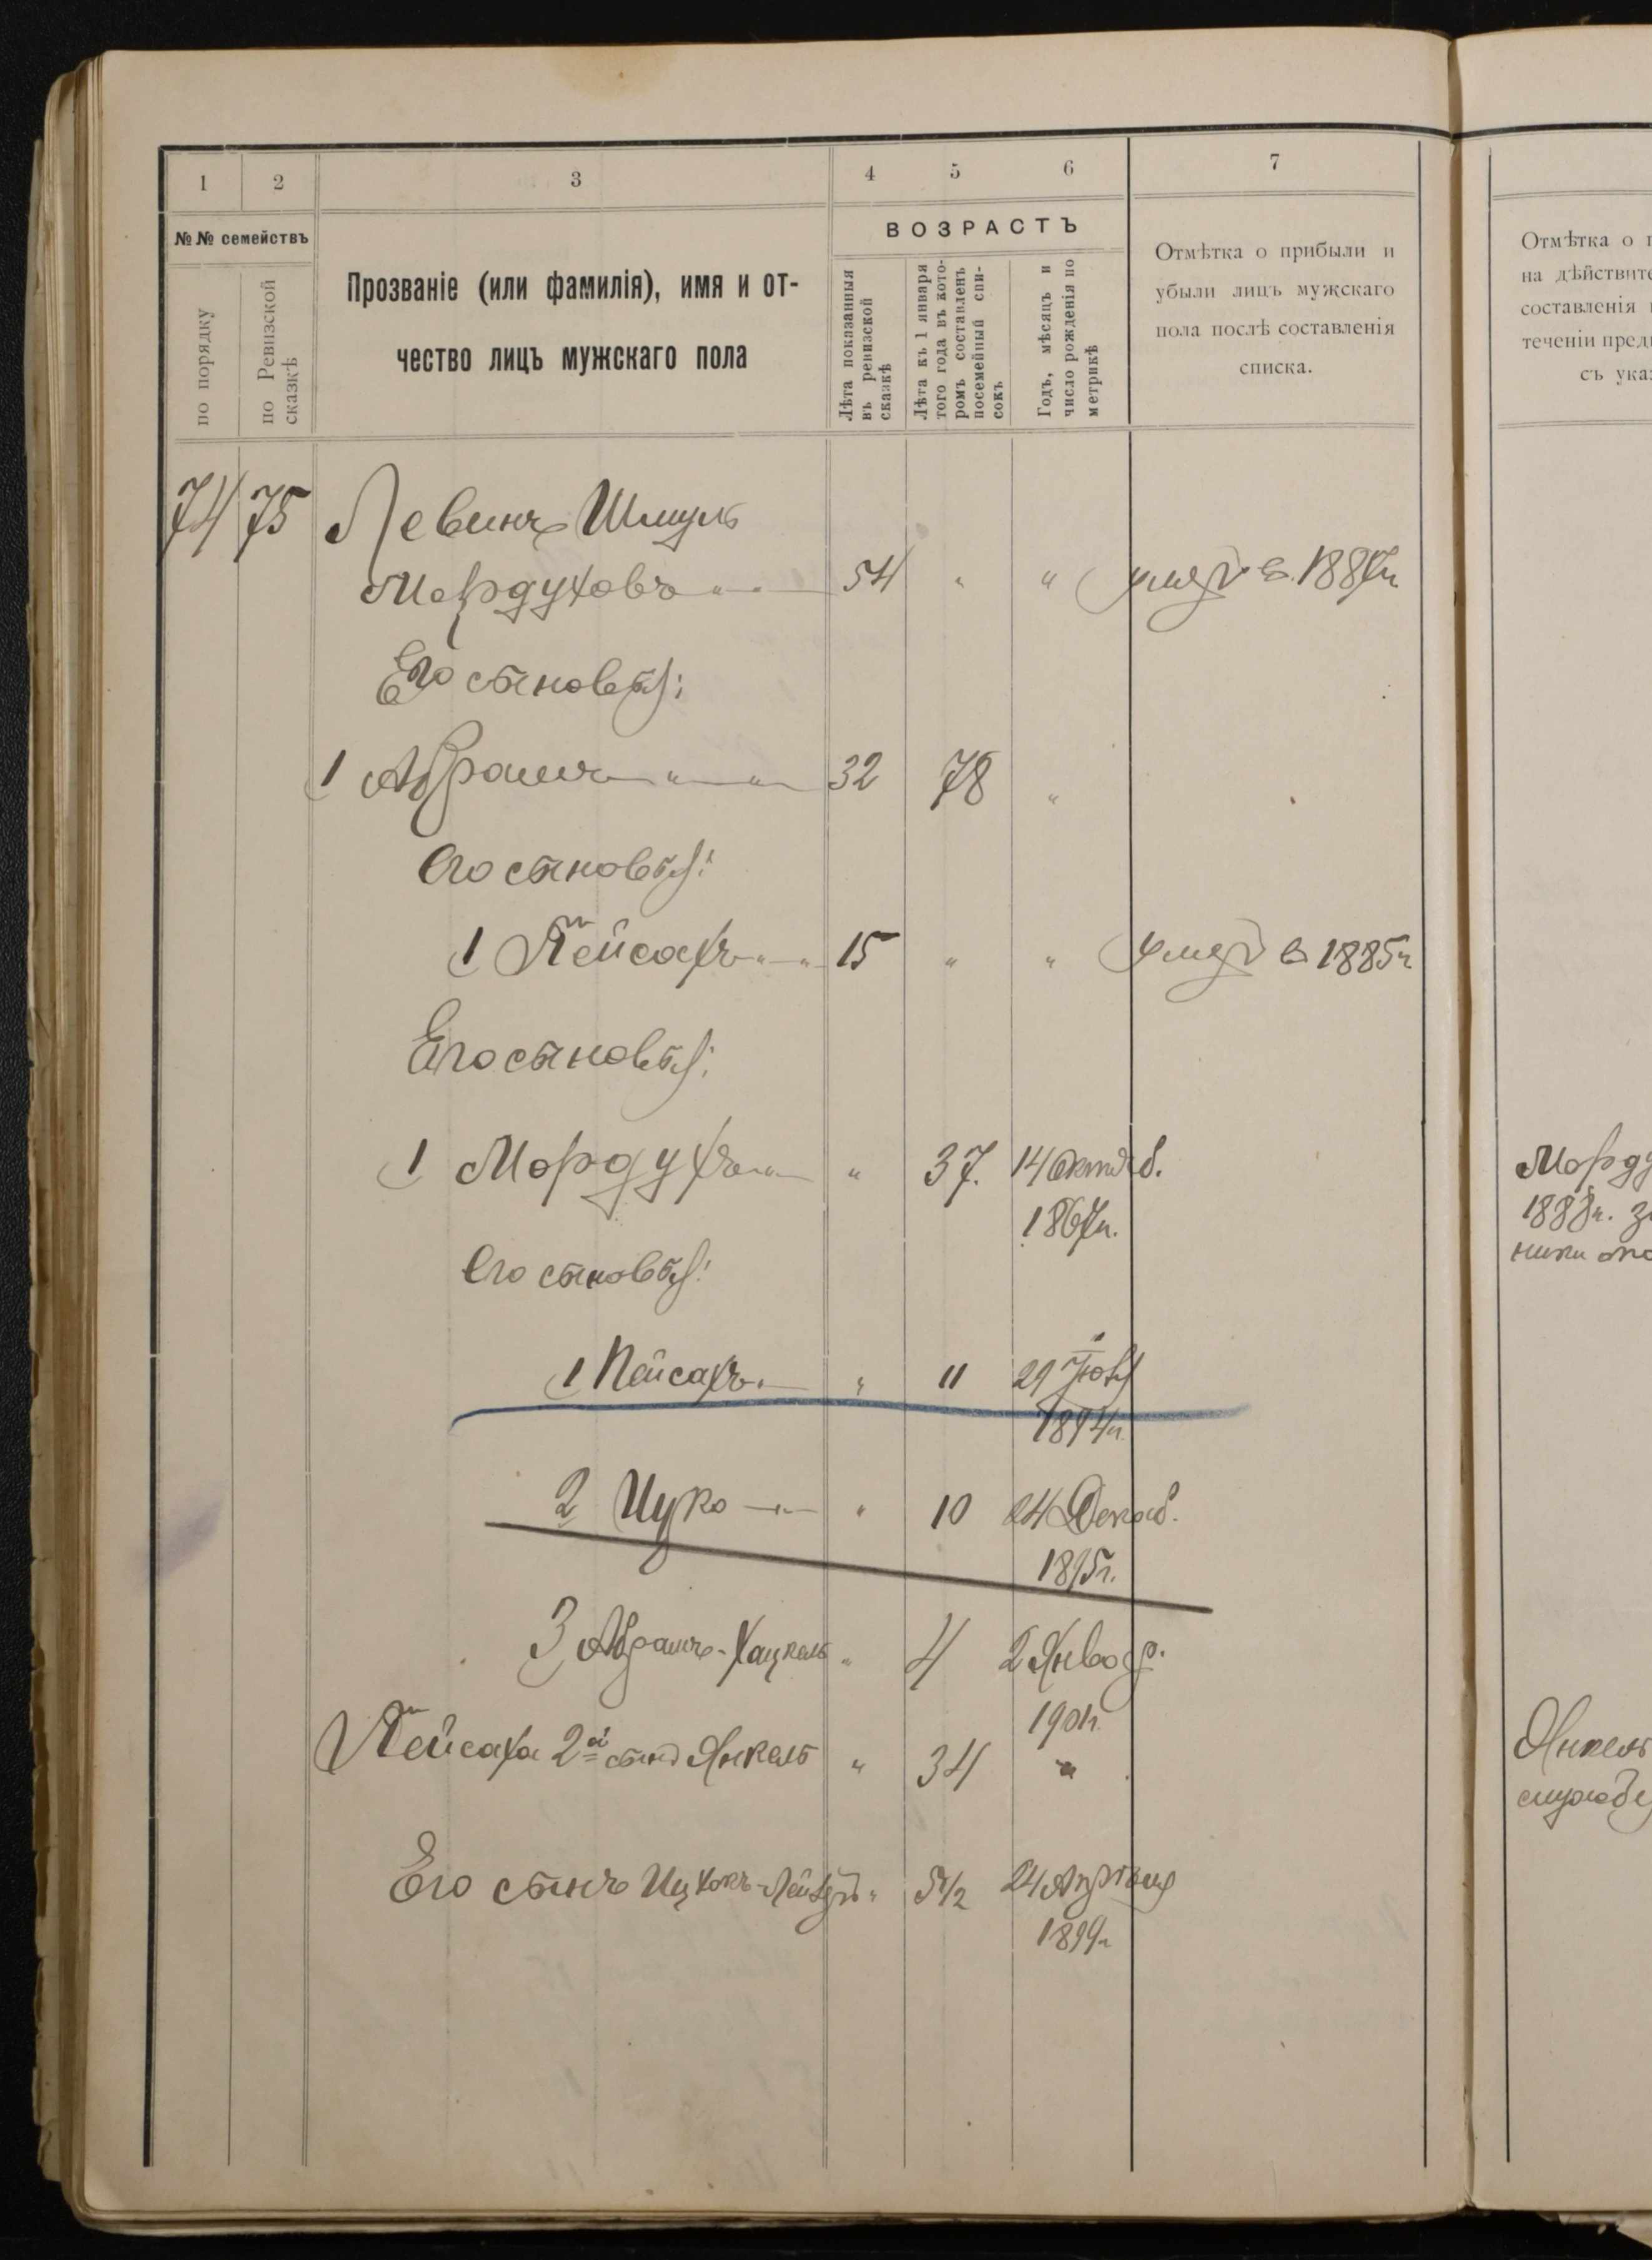 1 2 3 4 5 6 7
№№ семействъ
по порядку
по Ревизской сказкѣ
Прозваніе (или фамилія), имя и от-
чество лицъ мужскаго пола
ВОЗРАСТЪ
Лѣта показанныя
въ ревизской
сказкѣ
Лѣта къ 1 января
того года въ кото-
ромъ составленъ
посемейный спи-
сокъ
Годъ, мѣсяцъ и
число рожденія по
метрикѣ
Отмѣтка о прибыли и
убыли лицъ мужскаго
пола послѣ составленія
списка.
Отмѣтка о
на дѣйствите
составленія
теченіи пред
съ ука
74 75 Левинъ Шмуль
Мордуховъ 54 " " умеръ въ 1887г
Его сыновья:
1 Абрамъ 32 78 "
Его сыновья:
1 Пейсахъ 15 " " умеръ въ 1885г
Его сыновья:
1 Мордухъ " 37. 14 Октяб.
1867г.
Его сыновья:
1 Пейсахъ " 11 29
1894г.
2 Ицко " 10 24 Декаб.
1895г.
3 Абрамъ-Хацкель " 4 2 Январ.
1901г.
Пейсаха 2й сынъ Янкель " 34 "
Его сынъ Ицхокъ-Лейзеръ " 5 1/2 24 Апрѣля
1899г
Морду
1888г. з
ники
Янкель
службе